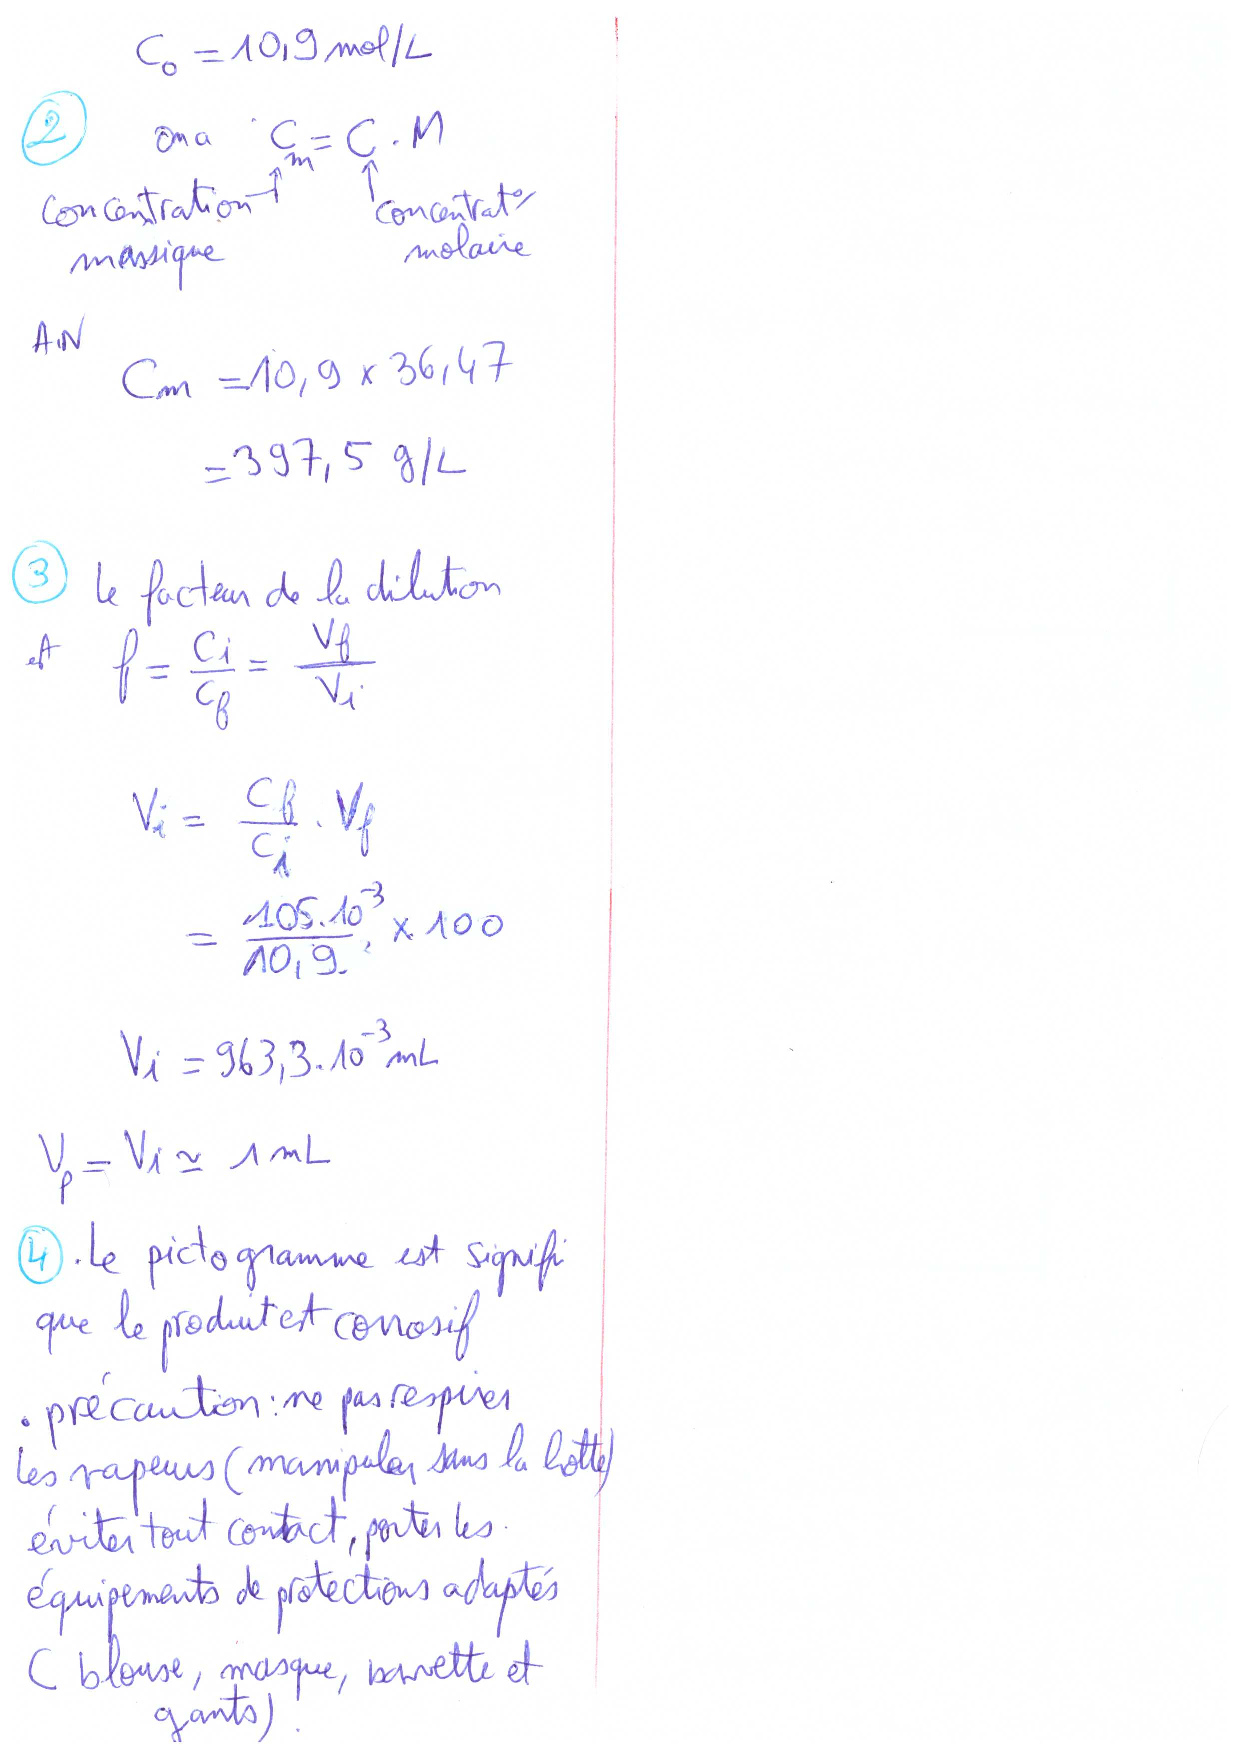 C₀ = 10,9 mol/L
2 on a Cm = C . M
concentration massique
concentrat° molaire
A.N
Cm = 10,9 x 36,47
= 397,5 g/L
3 le facteur de la dilution
est f = Ci/Cf = Vf/Vi
Vi = Cf/Ci . Vf
= 105.10⁻³/10,9 x 100
Vi = 963,3.10⁻³ mL
Vp = Vi ≃ 1 mL
4 . Le pictogramme est signifi
que le produit est corrosif
. précaution : ne pas respirer
les vapeurs (manipuler sans la hotte)
éviter tout contact, porter les
équipements de protections adaptés
( blouse, masque, et
gants) !